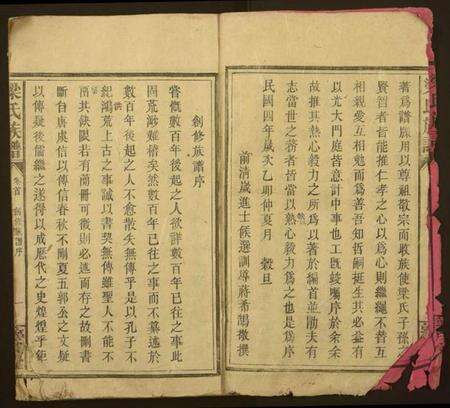 著為譜牒用以尊祖敬宗而收族使梁氏子孫
賢智者皆能推仁孝之心以為心則繼繩不替互
相親愛互相勉而為善吾知哲嗣挺生其必益有
以尤大門庭皆意計中事也工既竣囑序於余余
故推其熱心毅力之所為以著於編首並勗夫有
志當世之務者皆當以熱心毅力為之也是為序
民國四年歲次乙卯仲夏月 穀旦
前清歲進士候選訓導蔣希鵠敬撰
梁氏族譜
創修族譜序
嘗慨數百年後起之人欲詳數百年已往之事此
固荒渺難稽矣然數百年已往之事而不纂述於
數百年後起之人不愈散失無傳乎是以孔子不
紀鴻荒上古之事誠以書契無傳雖聖人不能不
聞其缺限若有簡冊可徵則必述而存之故刪書
斷自唐虞信以傳信春秋不刪夏五郭公之文疑
以傳疑後儒繼之遂得以成歷代之史煌煌乎鉅
梁氏族譜
卷首 創修族譜序